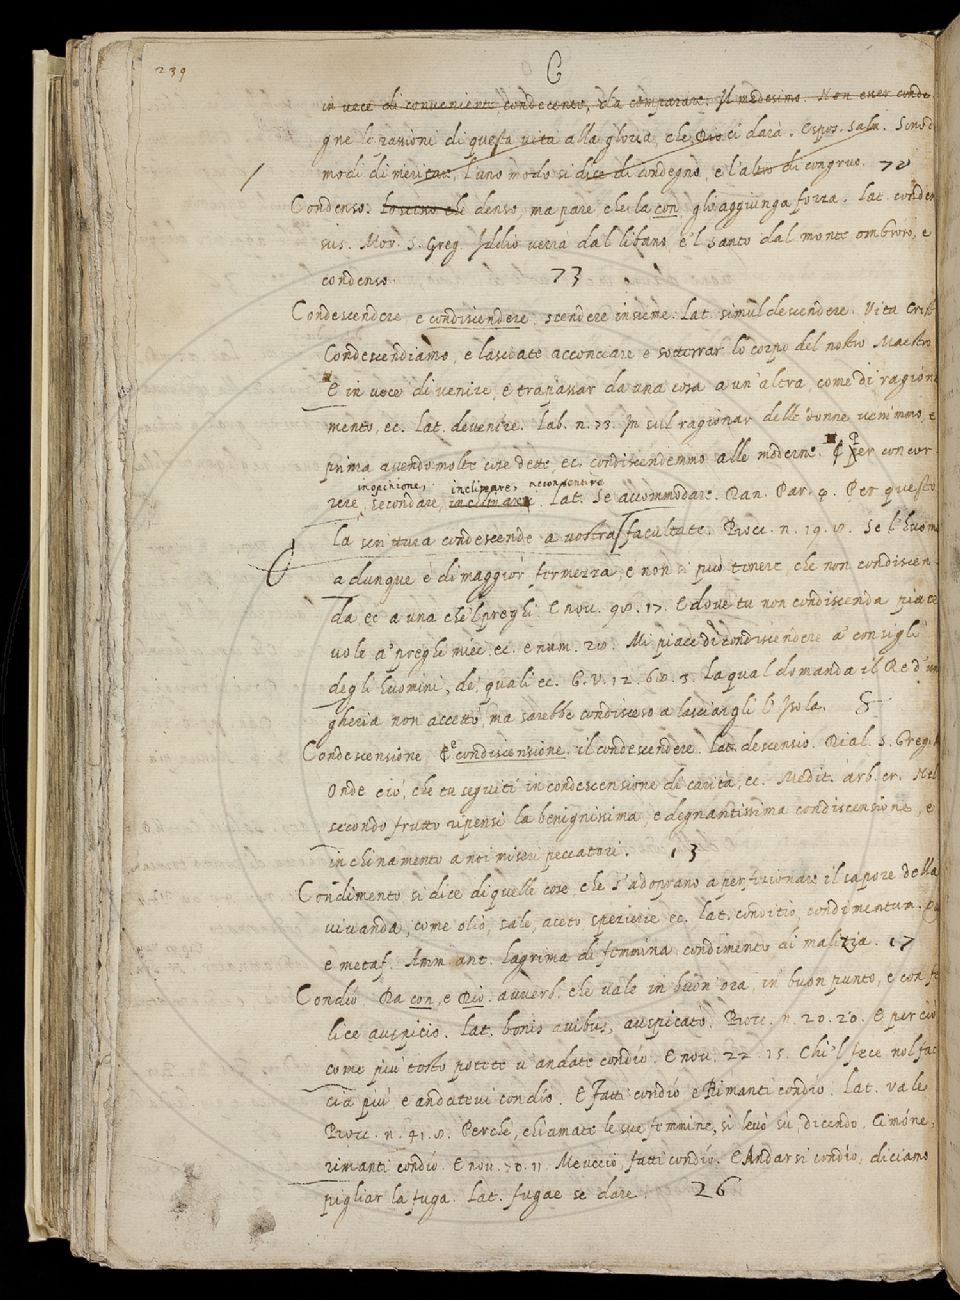 239
C
in vece di conveniente, condecente, da comparare. Il medesimo. Non esser conde
gne le passioni di questa vita alla gloria, che Dio ci darà. Espos. Salm. Sono d
modi di meritare, l'uno modo si dice di condegno, e l'altro di congruo. 72
Condenso. lo stesso che denso, ma pare che la con gli aggiunga forza. Lat. conden
sus. Mor. S. Greg. Iddio verrà dal libano, e 'l santo dal monte ombroso, e
condenso. 73
Condescendere e condiscendere, scendere insieme. Lat. simul descendere. Vita Crist.
Condescendiamo, e lasciate acconciare e sotterrar lo corpo del nostro Maestro
E in vece di venire, e trapassar da una cosa a un'altra, come di ragiona
mento, ec. Lat. devenire. Lab. n. 73. In sul ragionar delle donne venimmo, e
prima avendo molte cose dette, ec. condiscendemmo alle moderne. E Per concor
in opinione, inclinare, acconsentire
rere, secondare, inclinare. Lat. Se accommodare. Dan. Par. 4. Per questo
la scrittura condescende a vostra facultate. Bocc. n. 19. 8. Se l'huomo
adunque è di maggior fermezza, e non si può tenere, che non condiscen
da ec a una che 'l preghi. E nov. 98. 17. E dove tu non condiscenda piace
vole a' preghi miei. ec. e num. 20. Mi piace di condiscendere a' consigli
degli huomini, de' quali ec. G. V. 12. 68. 3. La qual domanda il Re d'un
gheria non accettò, ma sarebbe condisceso a lasciargli l'Isola. 8
Condescensione, e condiscensione. il condescendere. Lat. descensio. Dial. S. Greg.
Onde ciò, che tu seguiti in condescensione di carità, ec. Medit. arb. cr. Nel
secondo frutto ripensi la benignissima, e degnantissima condiscensione, e
inchinamento a noi miseri peccatori. 13
Condimento si dice di quelle cose, che s'adoprano a perfizionare il sapore della
vivanda, come olio, sale, aceto, spezierie ec. Lat. conditio, condimentum.
e metaf. Amm. ant. lagrima di femmina condimento di malizia. 17
Condio. Da con, e Dio. avverb. che vale in buon'ora, in buon punto, e con fe
lice auspicio. Lat. bonis avibus, auspicatò. Bocc. n. 20. 20. E per ciò
come più tosto potete v'andate condio. E nov. 22. 15. Chi 'l fece nol fac
cia più e andatevi con dio. E Fatti condio e Rimanti condio. Lat. vale
Bocc. n. 41. 8. Perchè, chiamate le sue femmine, si levò sù, dicendo, Cimone,
rimanti condio. E nov. 70. 11. Meuccio fatti condio. E Andarsi condio, diciamo
pigliar la fuga. Lat. fugae se dare. 26